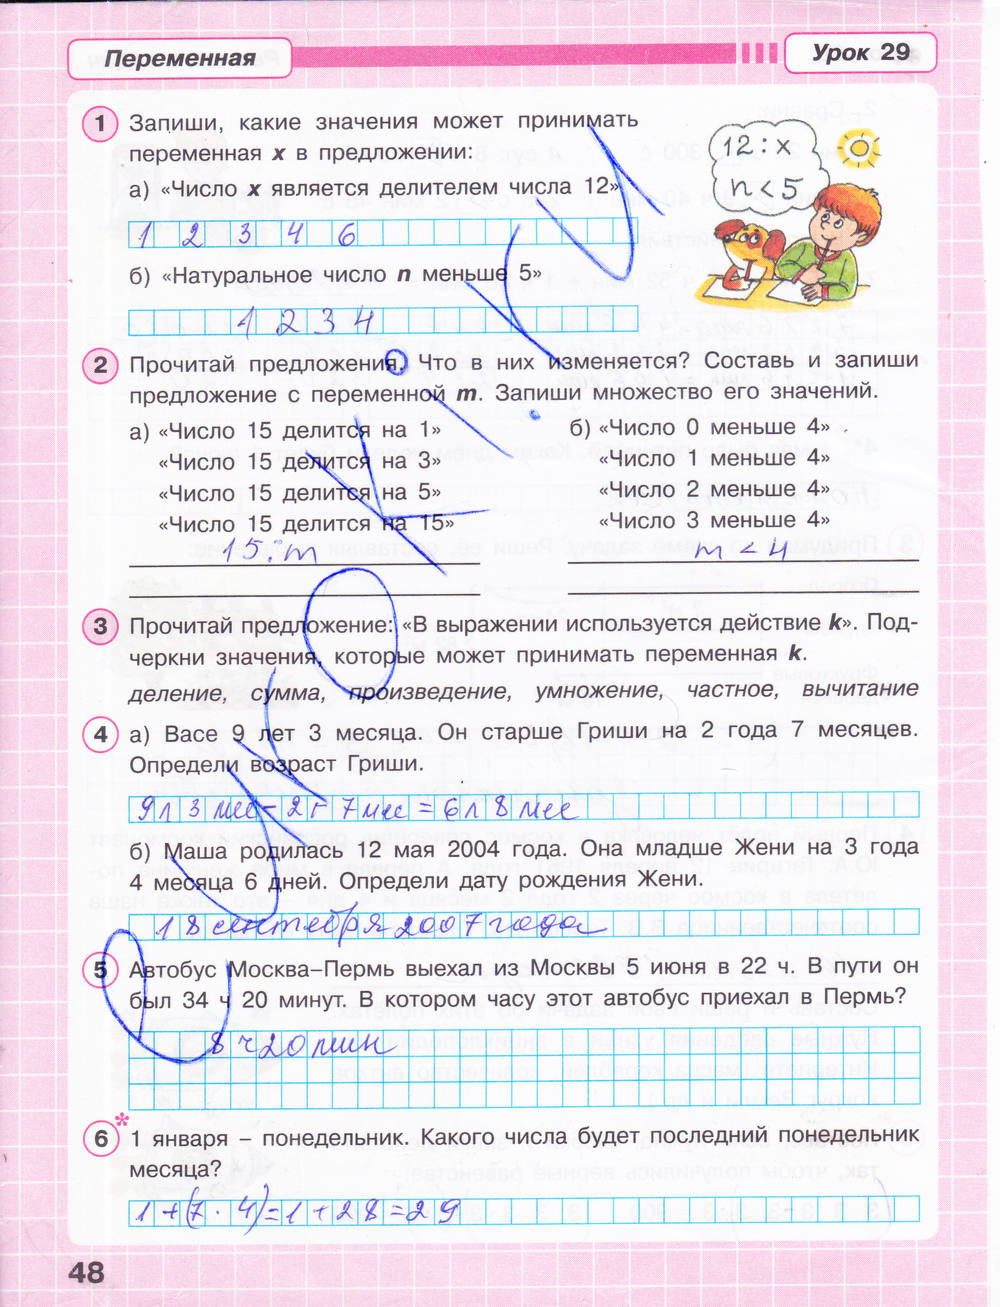 Переменная
Урок 29
1 Запиши, какие значения может принимать
переменная x в предложении:
12 : x
n < 5
а) «Число x является делителем числа 12»
1 2 3 4 6
б) «Натуральное число n меньше 5»
1 2 3 4
2 Прочитай предложения. Что в них изменяется? Составь и запиши
предложение с переменной m. Запиши множество его значений.
а) «Число 15 делится на 1»
«Число 15 делится на 3»
«Число 15 делится на 5»
«Число 15 делится на 15»
15 : m
б) «Число 0 меньше 4»
«Число 1 меньше 4»
«Число 2 меньше 4»
«Число 3 меньше 4»
m < 4
3 Прочитай предложение: «В выражении используется действие k». Под-
черкни значения, которые может принимать переменная k.
деление, сумма, произведение, умножение, частное, вычитание
4 а) Васе 9 лет 3 месяца. Он старше Гриши на 2 года 7 месяцев.
Определи возраст Гриши.
9 л 3 мес - 2 г 7 мес = 6 л 8 мес
б) Маша родилась 12 мая 2004 года. Она младше Жени на 3 года
4 месяца 6 дней. Определи дату рождения Жени.
18 сентября 2007 года
5 Автобус Москва–Пермь выехал из Москвы 5 июня в 22 ч. В пути он
был 34 ч 20 минут. В котором часу этот автобус приехал в Пермь?
8 ч 20 мин
6* 1 января – понедельник. Какого числа будет последний понедельник
месяца?
1 + (7 · 4) = 1 + 28 = 29
48